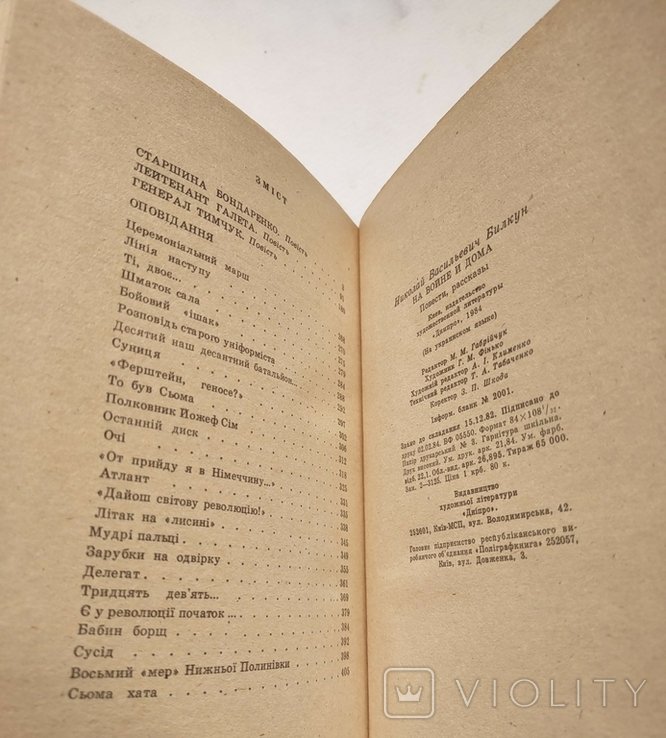 ЗМІСТ
СТАРШИНА БОНДАРЕНКО. Повість
ЛЕЙТЕНАНТ ГАЛЕТА. Повість
ГЕНЕРАЛ ТИМЧУК. Повість
ОПОВІДАННЯ
Церемоніальний марш
Лінія наступу
Ті, двоє...
Шматок сала
Бойовий «ішак»
Розповідь старого уніформіста
Десятий наш десантний батальйон...
Суниця
«Ферштейн, геносе?»
То був Сьома
Полковник Йожеф Сім
Останній диск
Очі
«От прийду я в Німеччину...»
Атлант
«Дайош світову революцію!»
Літак на «лисині»
Мудрі пальці
Зарубки на одвірку
Делегат
Тридцять дев'ять...
Є у революції початок...
Бабин борщ
Сусід
Восьмий «мер» Нижньої Полинівки
Сьома хата
3
91
180
268
270
279
284
288
292
297
302
306
312
318
325
331
335
338
345
349
353
361
369
379
384
392
398
405
Николай Васильевич Билкун
НА ВОЙНЕ И ДОМА
Повести, рассказы
Киев, издательство
художественной литературы
«Днипро», 1984
(На украинском языке)
Редактор М. М. Габрійчук
Художник Г. М. Фінько
Художній редактор А. І. Клименко
Технічний редактор Т. А. Табаченко
Коректор З. П. Шкода
Інформ. бланк № 2001.
Здано до складання 15.12.82. Підписано до
друку 02.02.84. БФ 05550. Формат 84×108¹/₃₂.
Папір друкарський № 3. Гарнітура шкільна.
Друк високий. Ум. друк. арк. 21,84. Ум. фарб.
відб. 22,1. Обл.-вид. арк. 26,895. Тираж 65 000.
Зам. 3—3125. Ціна 1 крб. 80 к.
Видавництво
художньої літератури
«Дніпро».
253601, Київ-МСП, вул. Володимирська, 42.
Головне підприємство республіканського ви-
робничого об'єднання «Поліграфкнига» 252057,
Київ, вул. Довженка, 3.
VIOLITY